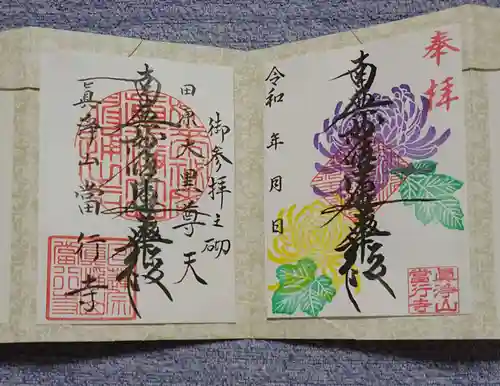 奉拝
南無妙法蓮華経
令和 年 月 日
眞浄山
當行寺
御参拝之砌
田原大黒尊天
南無妙法蓮華経
眞浄山 當行寺